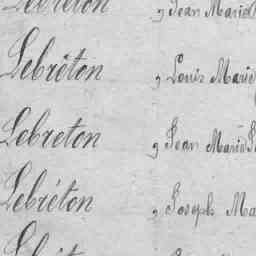 Lebreton , Jean Marie
Lebréton , Louis Marie
Lebreton , Jean Marie
Lebréton , Joseph Ma